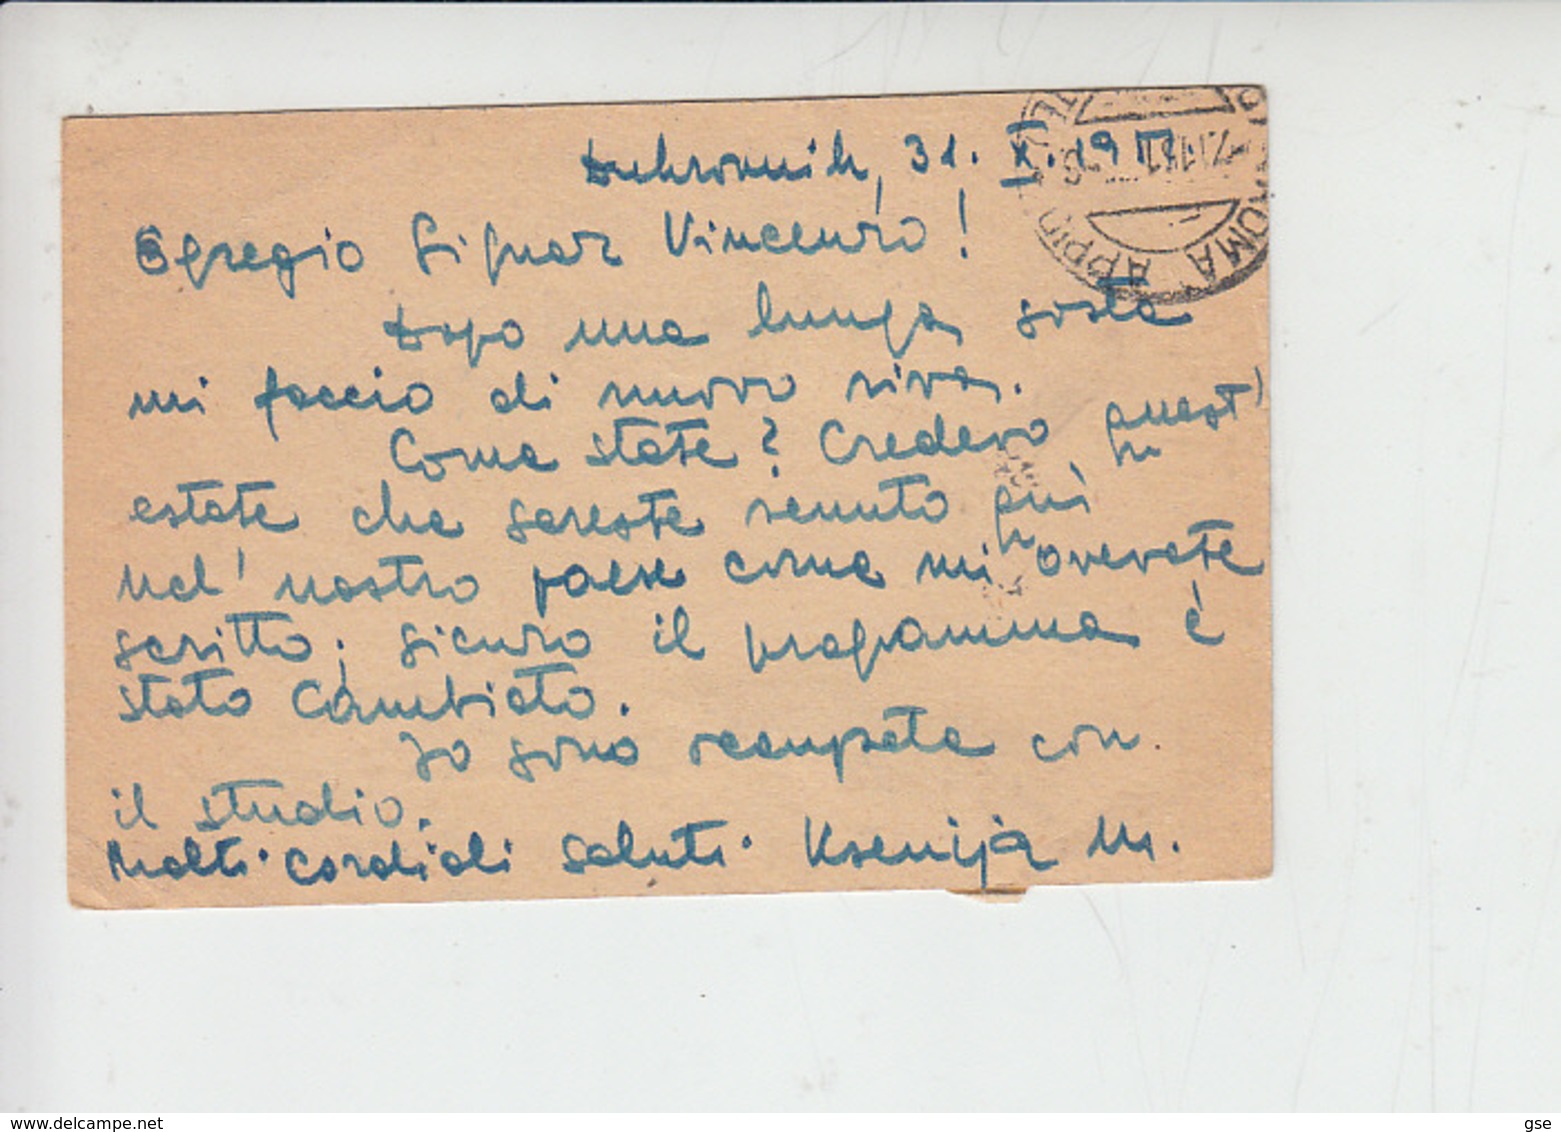 Dubrovnik, 31. X. 19
Egregio Signor Vincenzo!
Dopo una lunga sosta
mi faccio di nuovo viva.
Come state? Credevo quest'
estate che sareste venuto quì
nel' nostro paese come mi avevate
scritto; sicuro il programma è
stato cambiato.
Io sono occupata con
il studio.
Molti cordiali saluti. Ksenija M.
ROMA APPIO
www.delcampe.net
gse